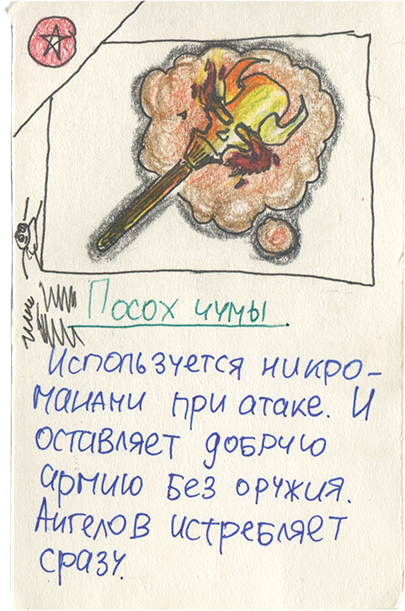 Посох чумы
Используется никро-
манами при атаке. И
оставляет добрую
армию без оружия.
Ангелов истребляет
сразу.